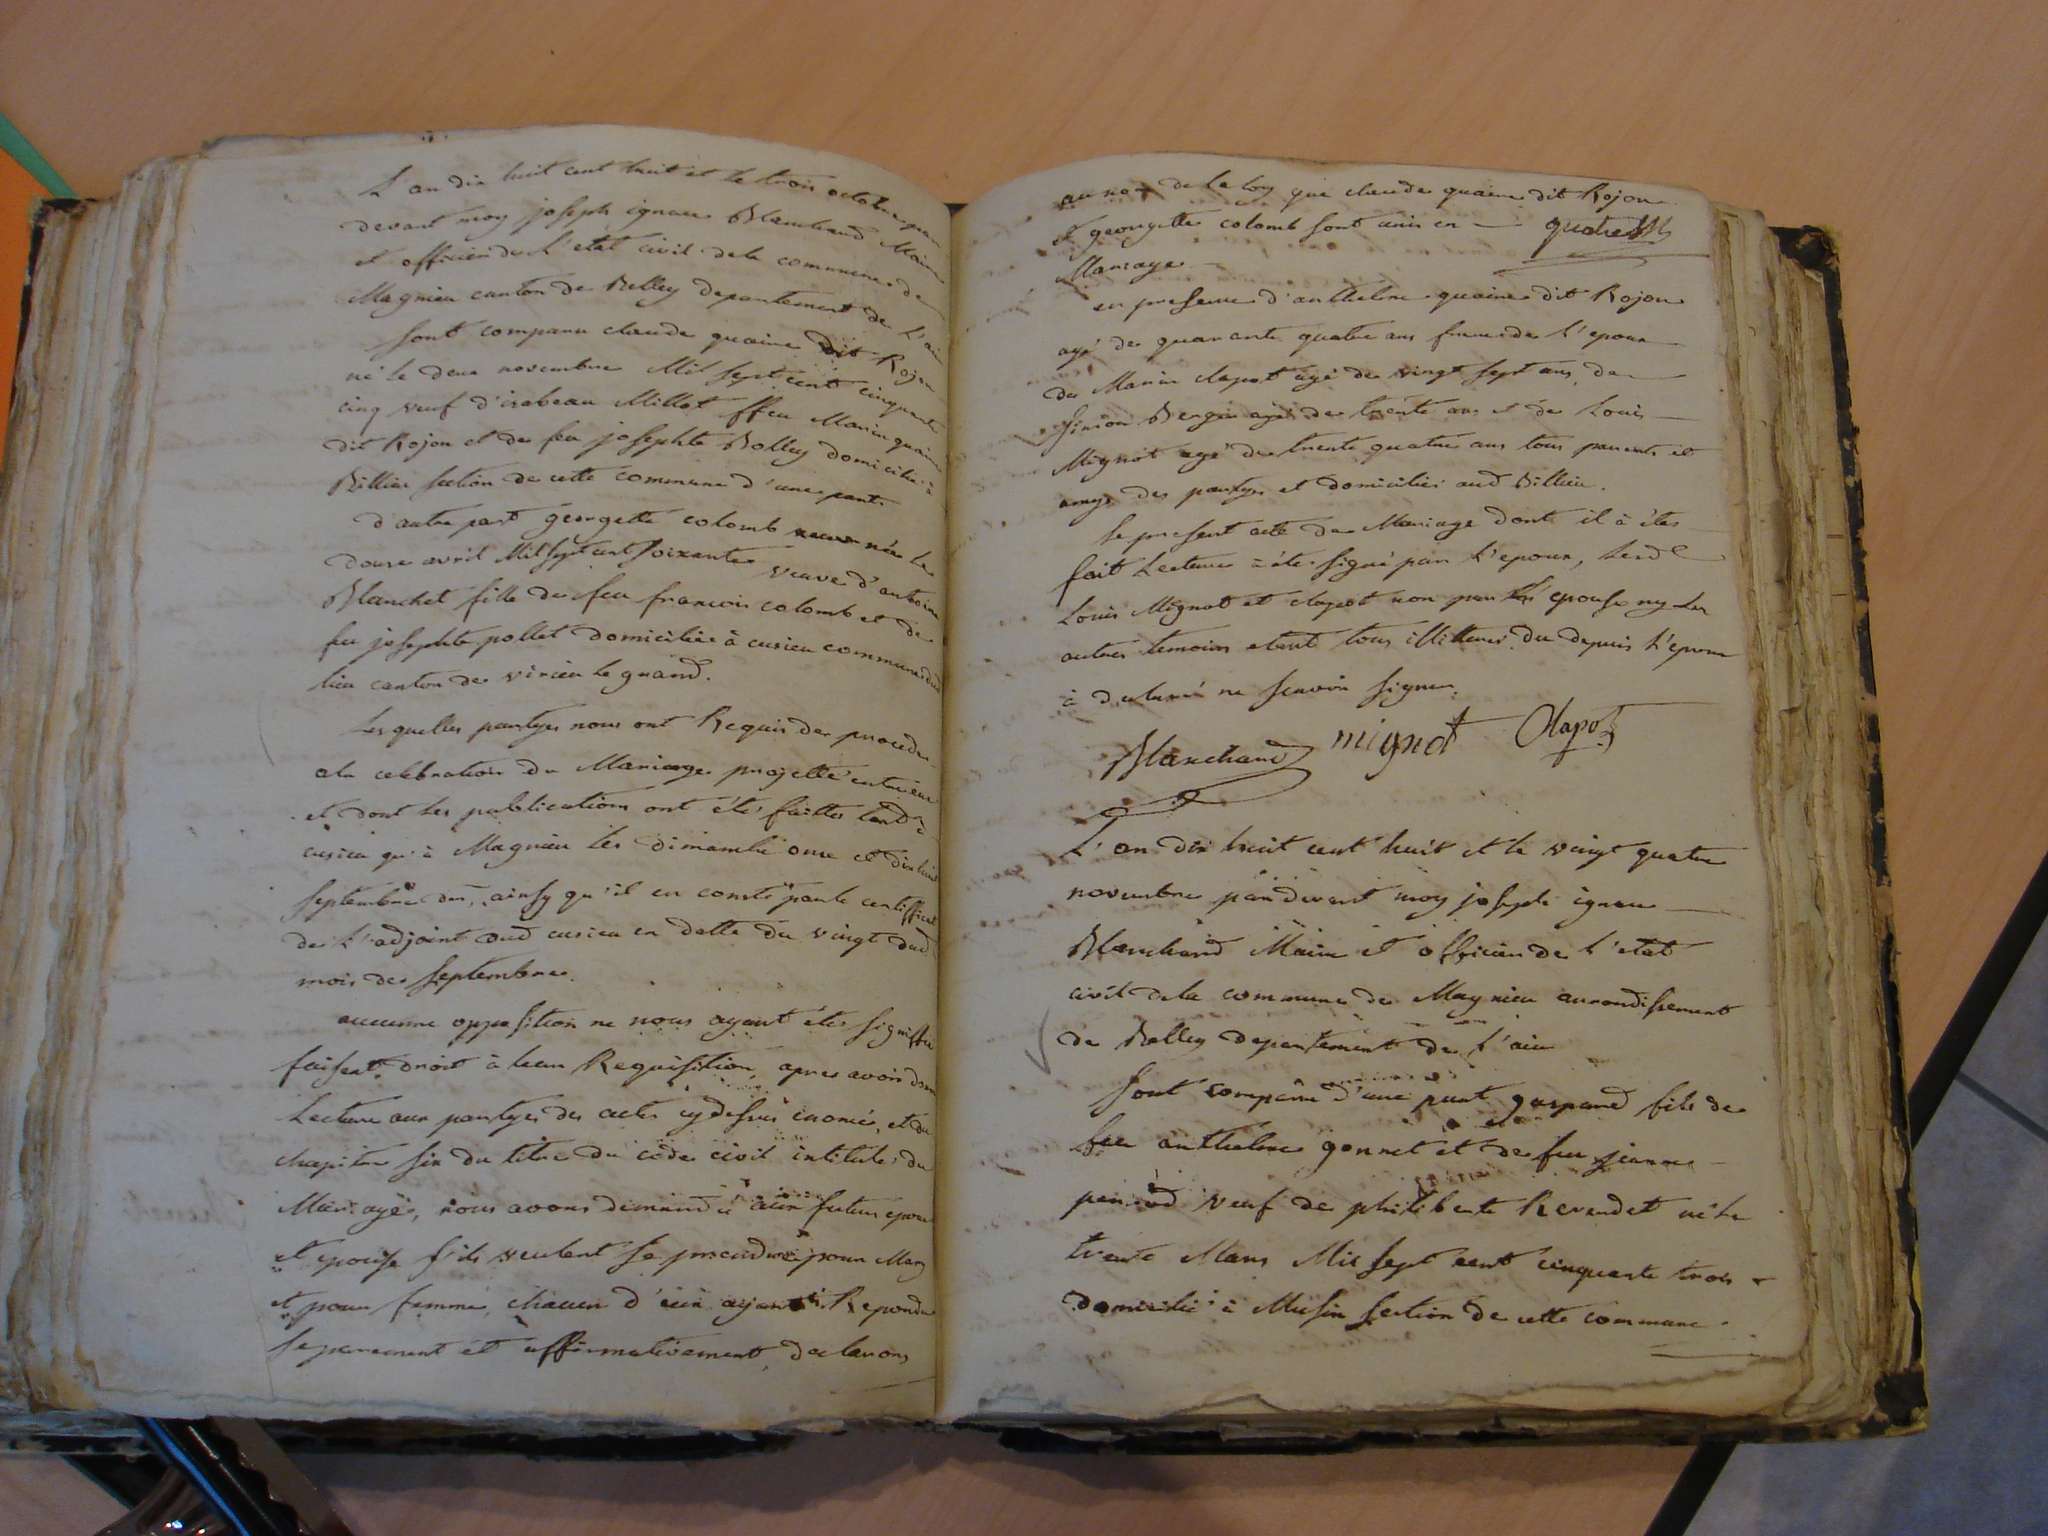 L'an dix huit cent huit et le trois octobre par
devant moy joseph ignace Blanchard Maire
et officier de L'etat civil de la commune de
Magnieu canton de Belley departement de L'ain
sont comparu claude quaine dit Rojon
né le deux novembre Mil sept cent cinquante
cinq veuf d'isabeau Millot ffeu Marin quaine
dit Rojon et de feu josephte Bolley domicilié à
Billieu section de cette commune d'une part
d'autre part georgette colomb née Le
douze avril Mil sept cent soixante veuve d'antoine
Blanchet fille de feu francois colomb et de
feu josephte pollet domiciliée à cusieu commune dud
lieu canton de virieu le grand.
Lesquelles partyes nous ont Requis de proceder
a la celebration du Mariage projetté entre eux
et dont les publications ont été faittes tant à
cusieu qu'à Magnieu les dimanche onze et dix huit
septembre der, ainsy qu'il en conste par le certifficat
de L'adjoint dud cusieu en datte du vingt dud
mois de septembre.
aucunne opposition ne nous ayant étée signiffiée
faisant droit à leur Requisition, apres avoir donné
Lecture aux partyes des actes cy dessus enoncé, et du
chapitre six du titre du code civil intitulé du
Mariage, nous avons demandé aux futurs epoux
et epouse s'ils veulent se prendre pour Mary
et pour femme, chacun d'eux ayant Repondu
separement et affirmativement, declarons
au nom de la loy que claude quaine dit Rojon
et georgette colomb sont unis en
Mariage
en presence d'anthelme quaine dit Rojon
agé de quarante quatre ans frere de L'epoux
de Marin clapot agé de vingt sept ans, de
Simeon Berger agé de trente ans et de Louis
Mignot agé de trente quatre ans tous parents et
amys des partyes et domiciliés aud Billieu.
le present acte de Mariage dont il à étée
fait Lecture à été signé par L'epoux, Lesd
Louis Mignot et clapot non par L'epouse ny les
autres temoins etant tous illitteres. du depuis L'epoux
à declaré ne scavoir signer.
Blanchard mignot Clapot
L'an dix huit cent huit et le vingt quatre
novembre pardevant moy joseph ignace
Blanchard Maire et officier de L'etat
civil de la commune de Magnieu arrondissement
de Belley departement de L'ain
Sont comparu d'une part gaspard fils de
feu anthelme gonnet et de feu jeanne
veuf de philiberte Revendet né le
trente Mars Mil sept cent cinquante trois
domicilié à Musin section de cette commune.